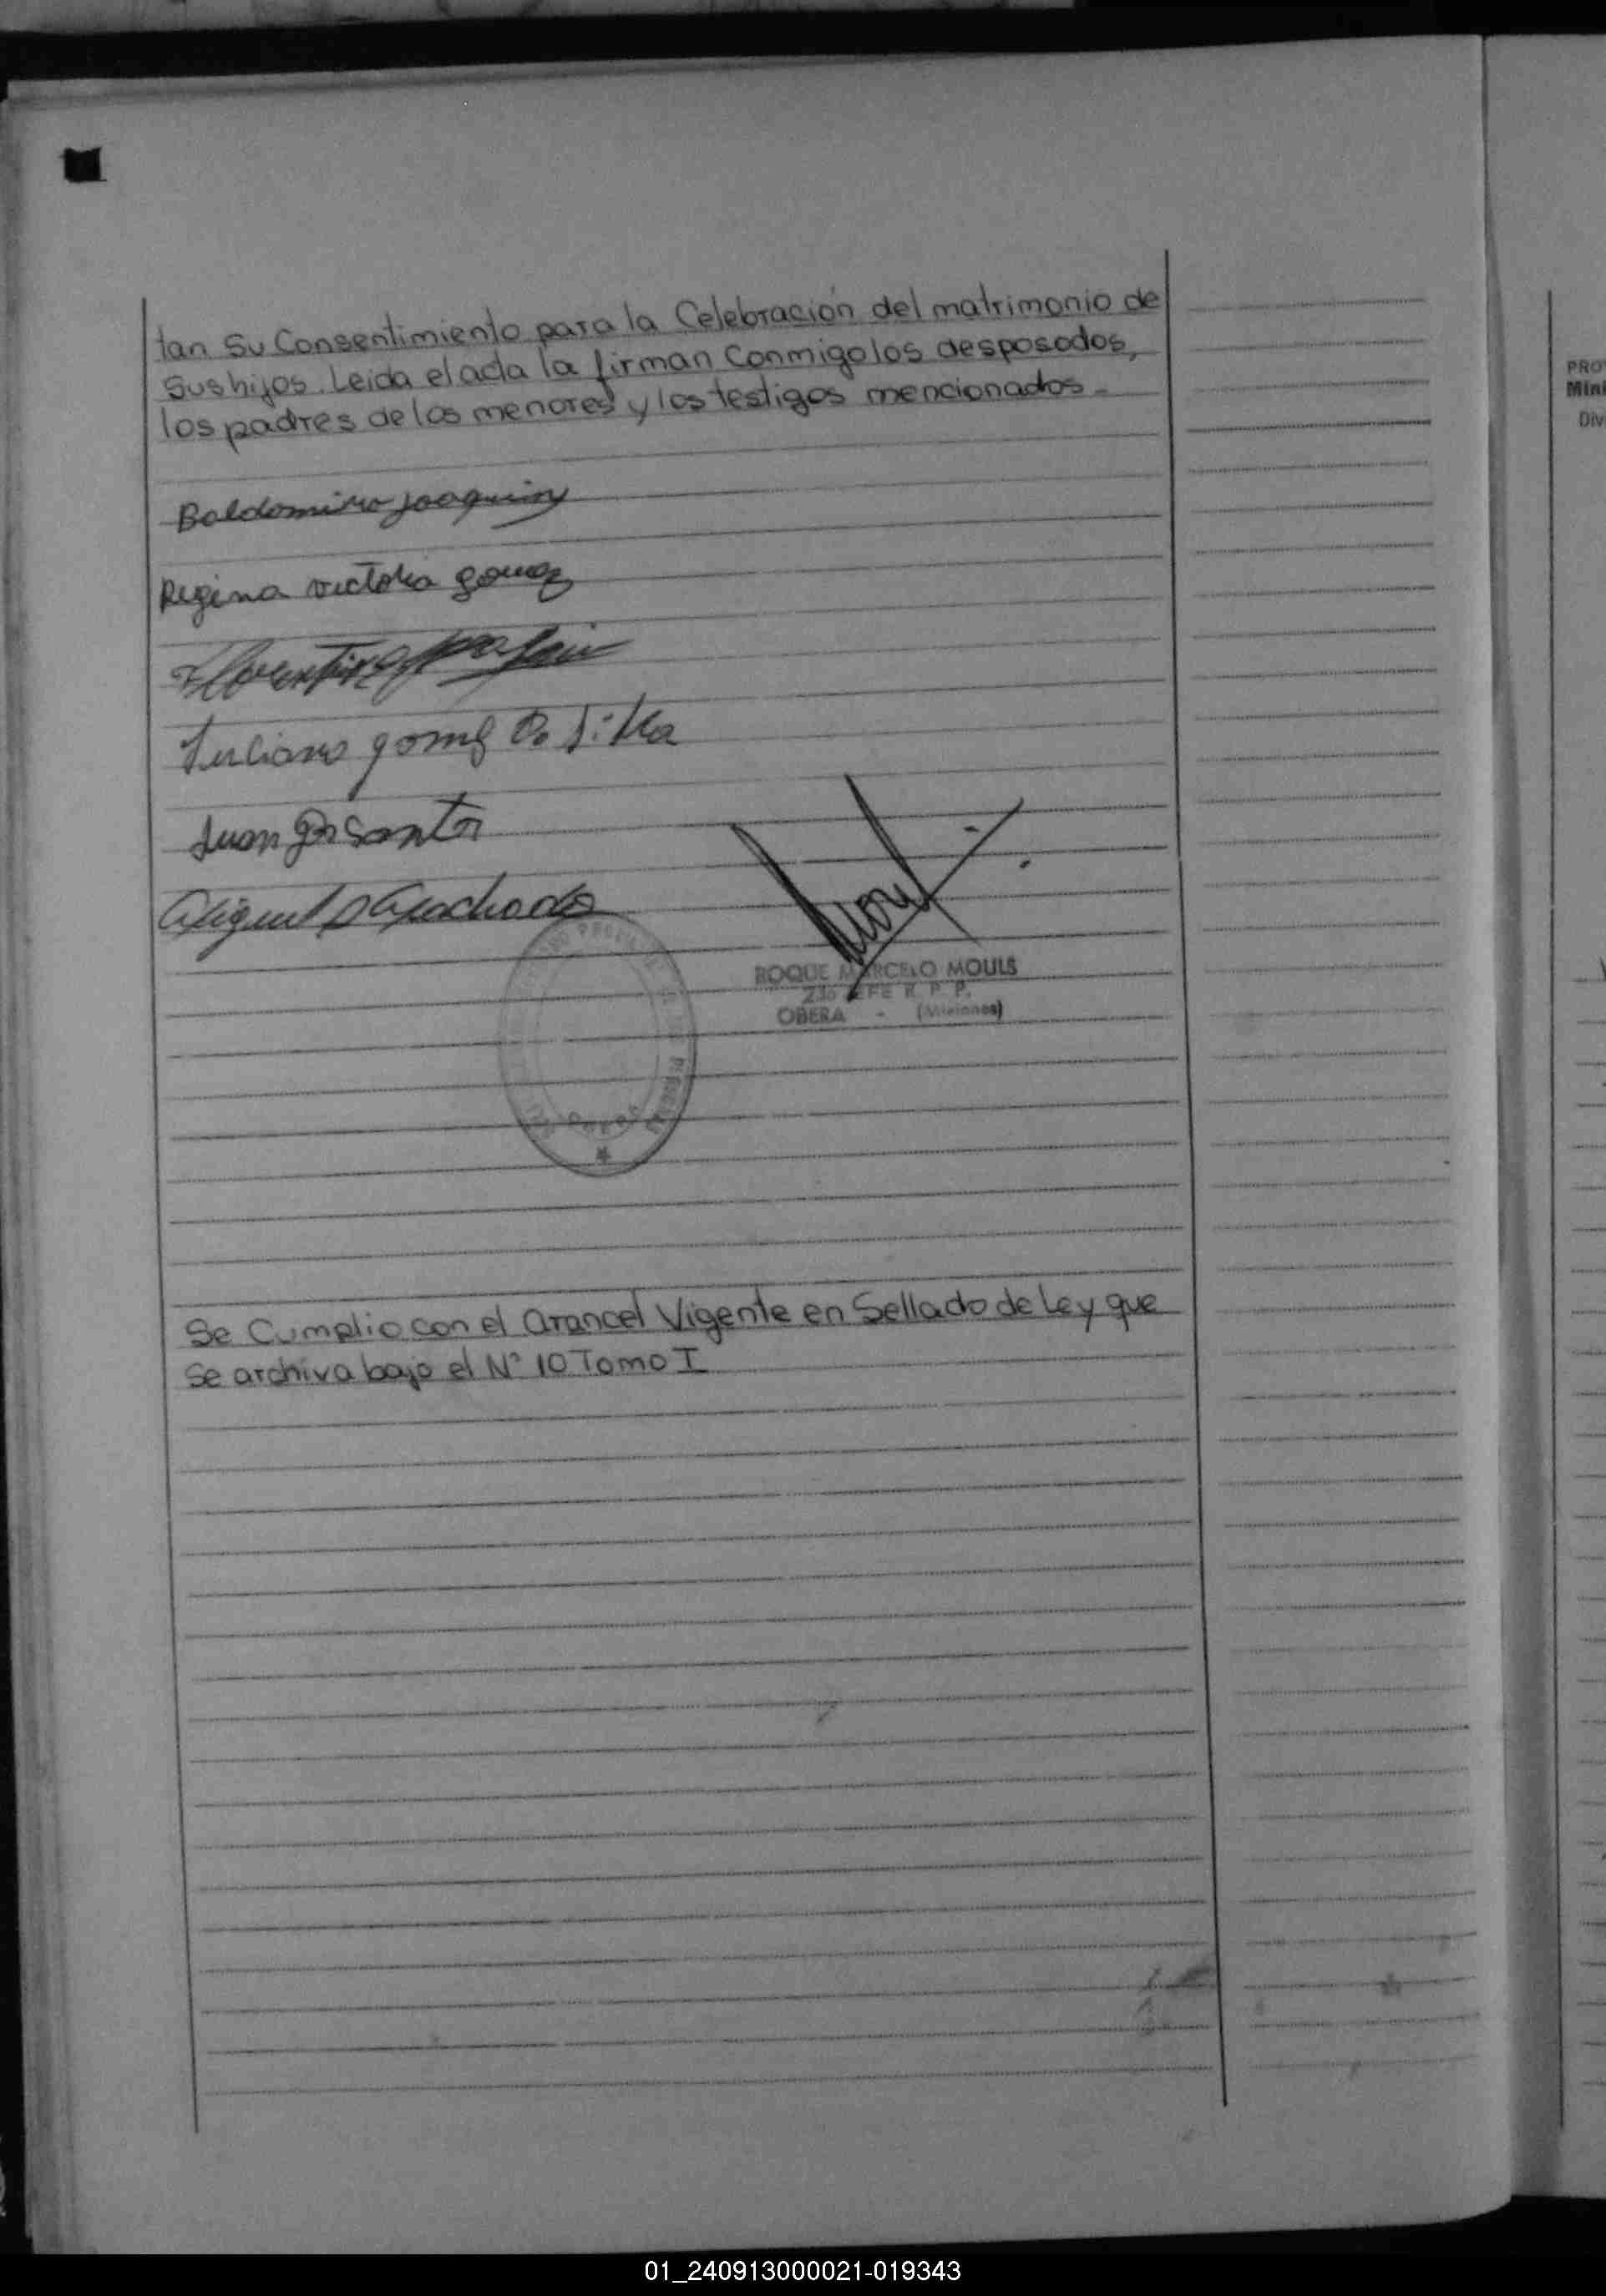 tan Su Consentimiento para la Celebración del matrimonio de
Sus hijos. Leida el acta la firman Conmigo los desposados,
los padres de los menores y los testigos mencionados-
Baldomiro Joaquin
Regina victoria gomez
Florentino
Luciano gomez Da Silva
Juan Dos Santos
Miguel Machado
ROQUE MARCELO MOULS
2do JEFE R. P. P.
OBERA - (Misiones)
Se Cumplio con el arancel Vigente en Sellado de Ley que
Se archiva bajo el N° 10 Tomo I
PRO
Mini
Div
01_240913000021-019343